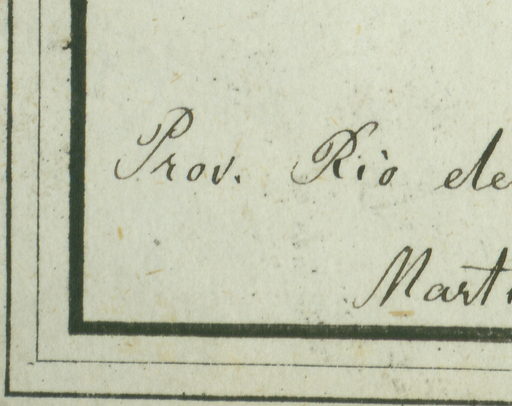 Prov. Rio de
Mart